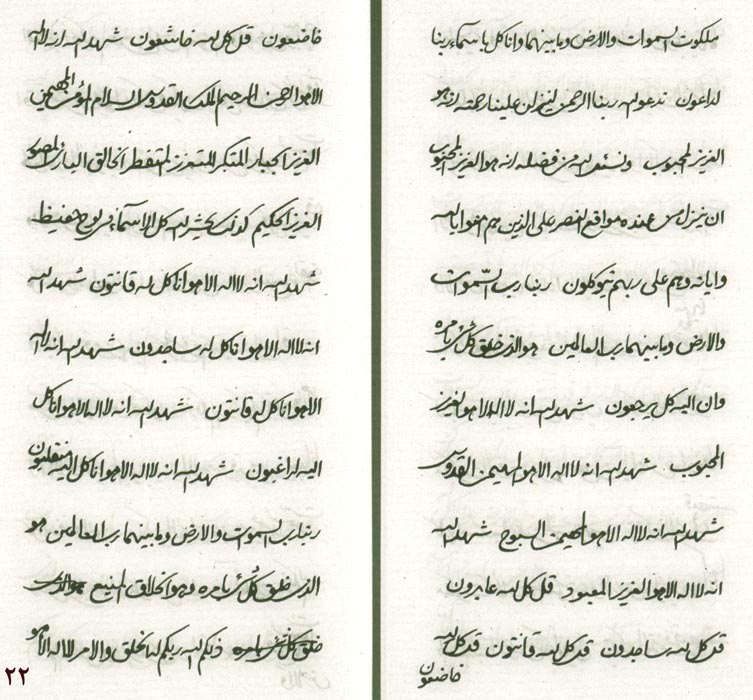 ملكوت السموات والارض وما بينهما وانا كل باسماء ربنا
لداعون ندعو الله ربنا الرحمن لينزلن علينا رحمته انه هو
العزيز المحبوب ونستغفر الله من فضله انه هو العزيز المحبوب
ان ينزل من عنده مواقع النصر على الذين هم امنوا بالله
واياته وهم على ربهم يتوكلون ربنا رب السموات
والارض وما بينهما رب العالمين هو الذي خلق كل شيء بامره
وان اليه كل يرجعون شهد الله انه لا اله الا هو العزيز
المحبوب شهد الله انه لا اله الا هو المهيمن القدوس
شهد الله انه لا اله الا هو المهيمن السبوح شهد الله
انه لا اله الا هو العزيز المعبود قل كل لله عابدون
قل كل لله ساجدون قل كل لله قانتون قل كل لله
خاضعون
خاضعون قل كل لله خاشعون شهد الله انه لا اله
الا هو الرحمن الرحيم الملك القدوس السلام المؤمن المهيمن
العزيز الجبار المتكبر المتعزز المتفطر الخالق البارئ المصور
العزيز الحكيم كل الاسماء في لوح حفيظ
شهد الله انه لا اله الا هو وانا كل له قانتون شهد الله
انه لا اله الا هو وانا كل له ساجدون شهد الله انه لا اله
الا هو وانا كل له قانتون شهد الله انه لا اله الا هو وانا كل
اليه لراغبون شهد الله انه لا اله الا هو وانا كل اليه منقلبون
ربنا رب السموات والارض وما بينهما رب العالمين هو
الذي خلق كل شيء بامره وهو الخلاق المنيع هو الذي
خلق كل شيء بامره ذلكم الله ربكم له الخلق والامر لا اله الا هو
٢٢